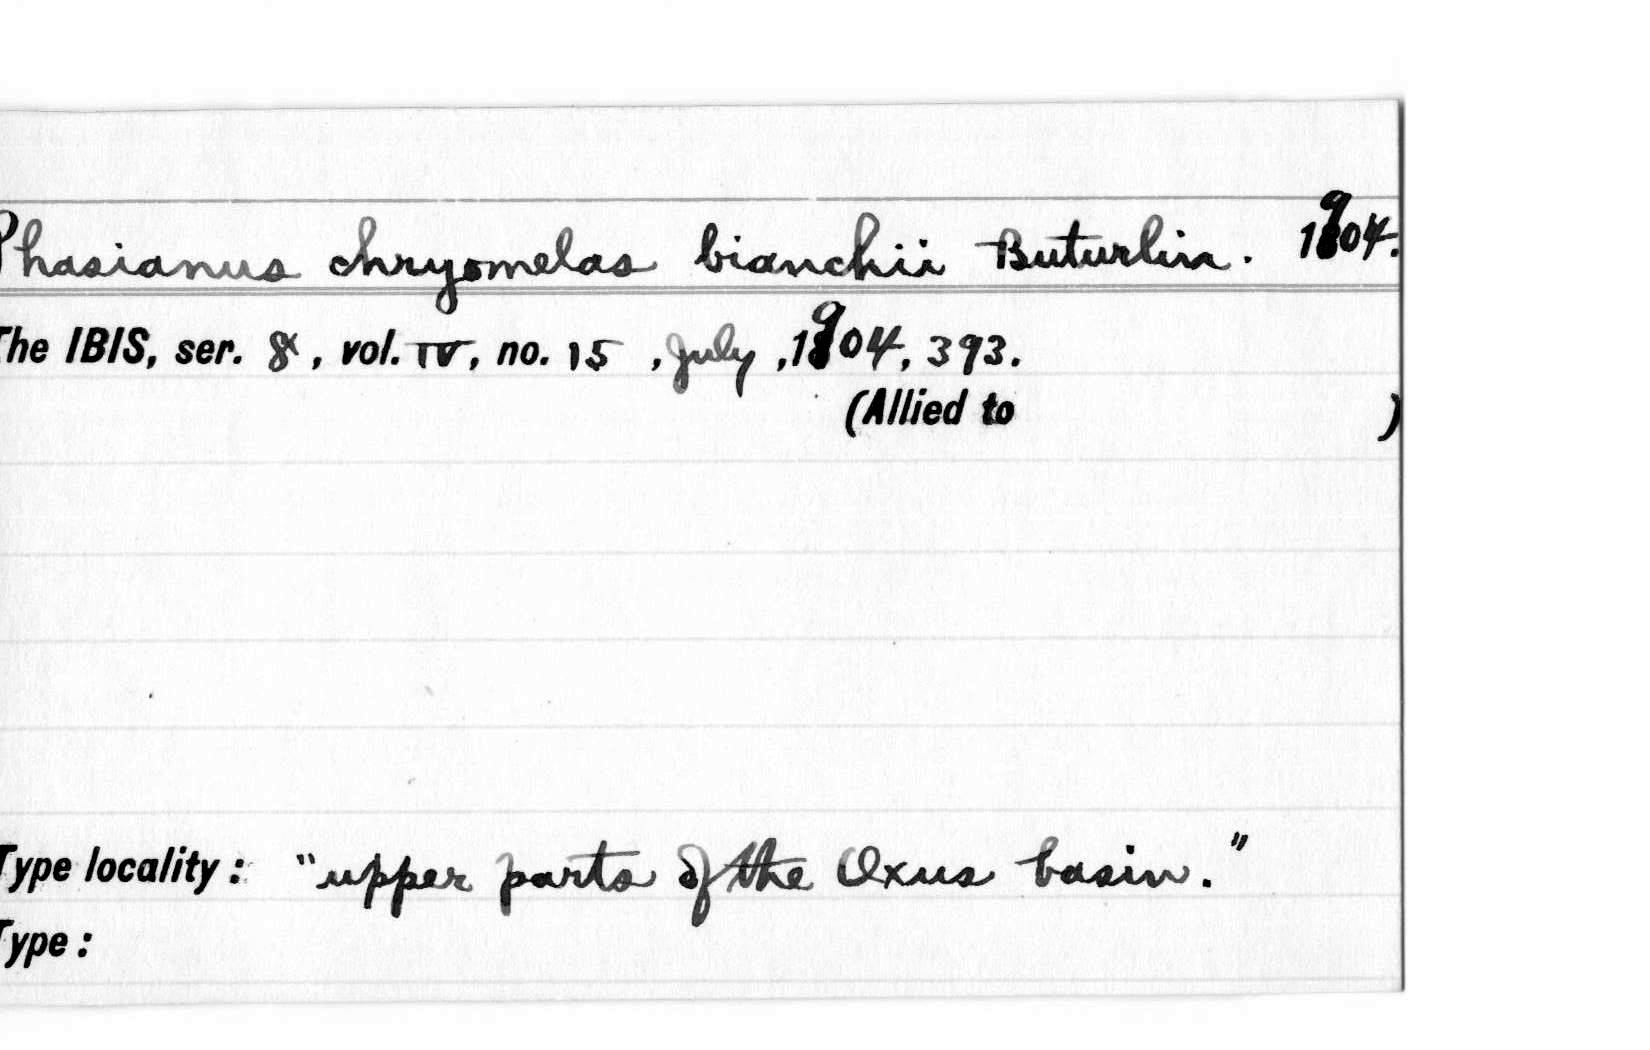 Phasianus chrysomelas bianchii Buturlin. 1904.
The IBIS, ser. 8, vol. IV, no. 15, July, 1904, 393.
(Allied to )
Type locality: "upper parts of the Oxus basin."
Type: